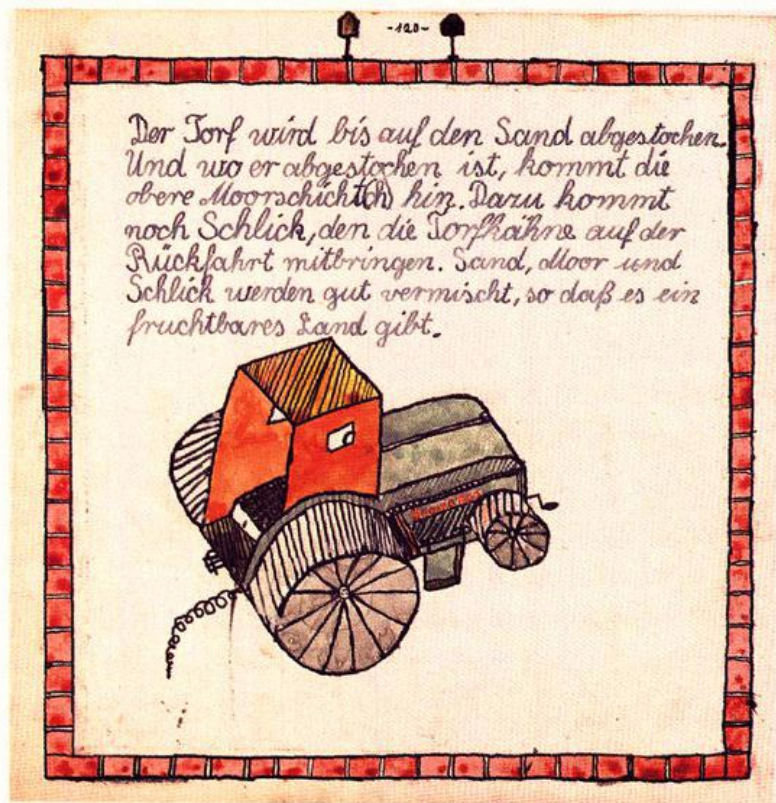 -120-
Der Torf wird bis auf den Sand abgestochen.
Und wo er abgestochen ist, kommt die
obere Moorschicht(h) hin. Dazu kommt
noch Schlick, den die Torfkähne auf der
Rückfahrt mitbringen. Sand, Moor und
Schlick werden gut vermischt, so daß es ein
fruchtbares Land gibt.